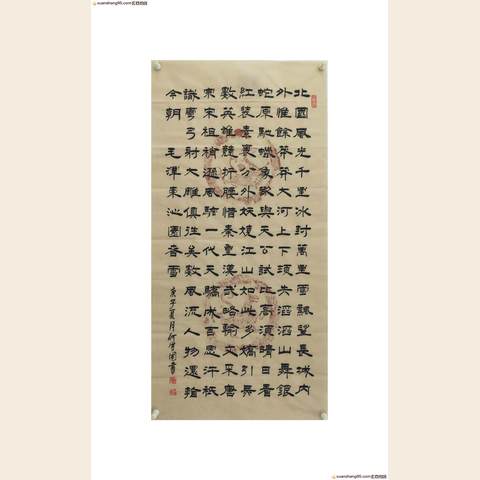 xuanshang95.com
北國風光千里冰封萬里雪飄望長城內
外惟餘莽莽大河上下頓失滔滔山舞銀
蛇原馳蠟象欲與天公試比高須晴日看
紅裝素裹分外妖嬈江山如此多嬌引無
數英雄競折腰惜秦皇漢武略輸文采唐
宗宋祖稍遜風騷一代天驕成吉思汗祇
識彎弓射大雕俱往矣數風流人物還看
今朝 毛澤東沁園春雪 庚子夏月何書
xuanshang95.com